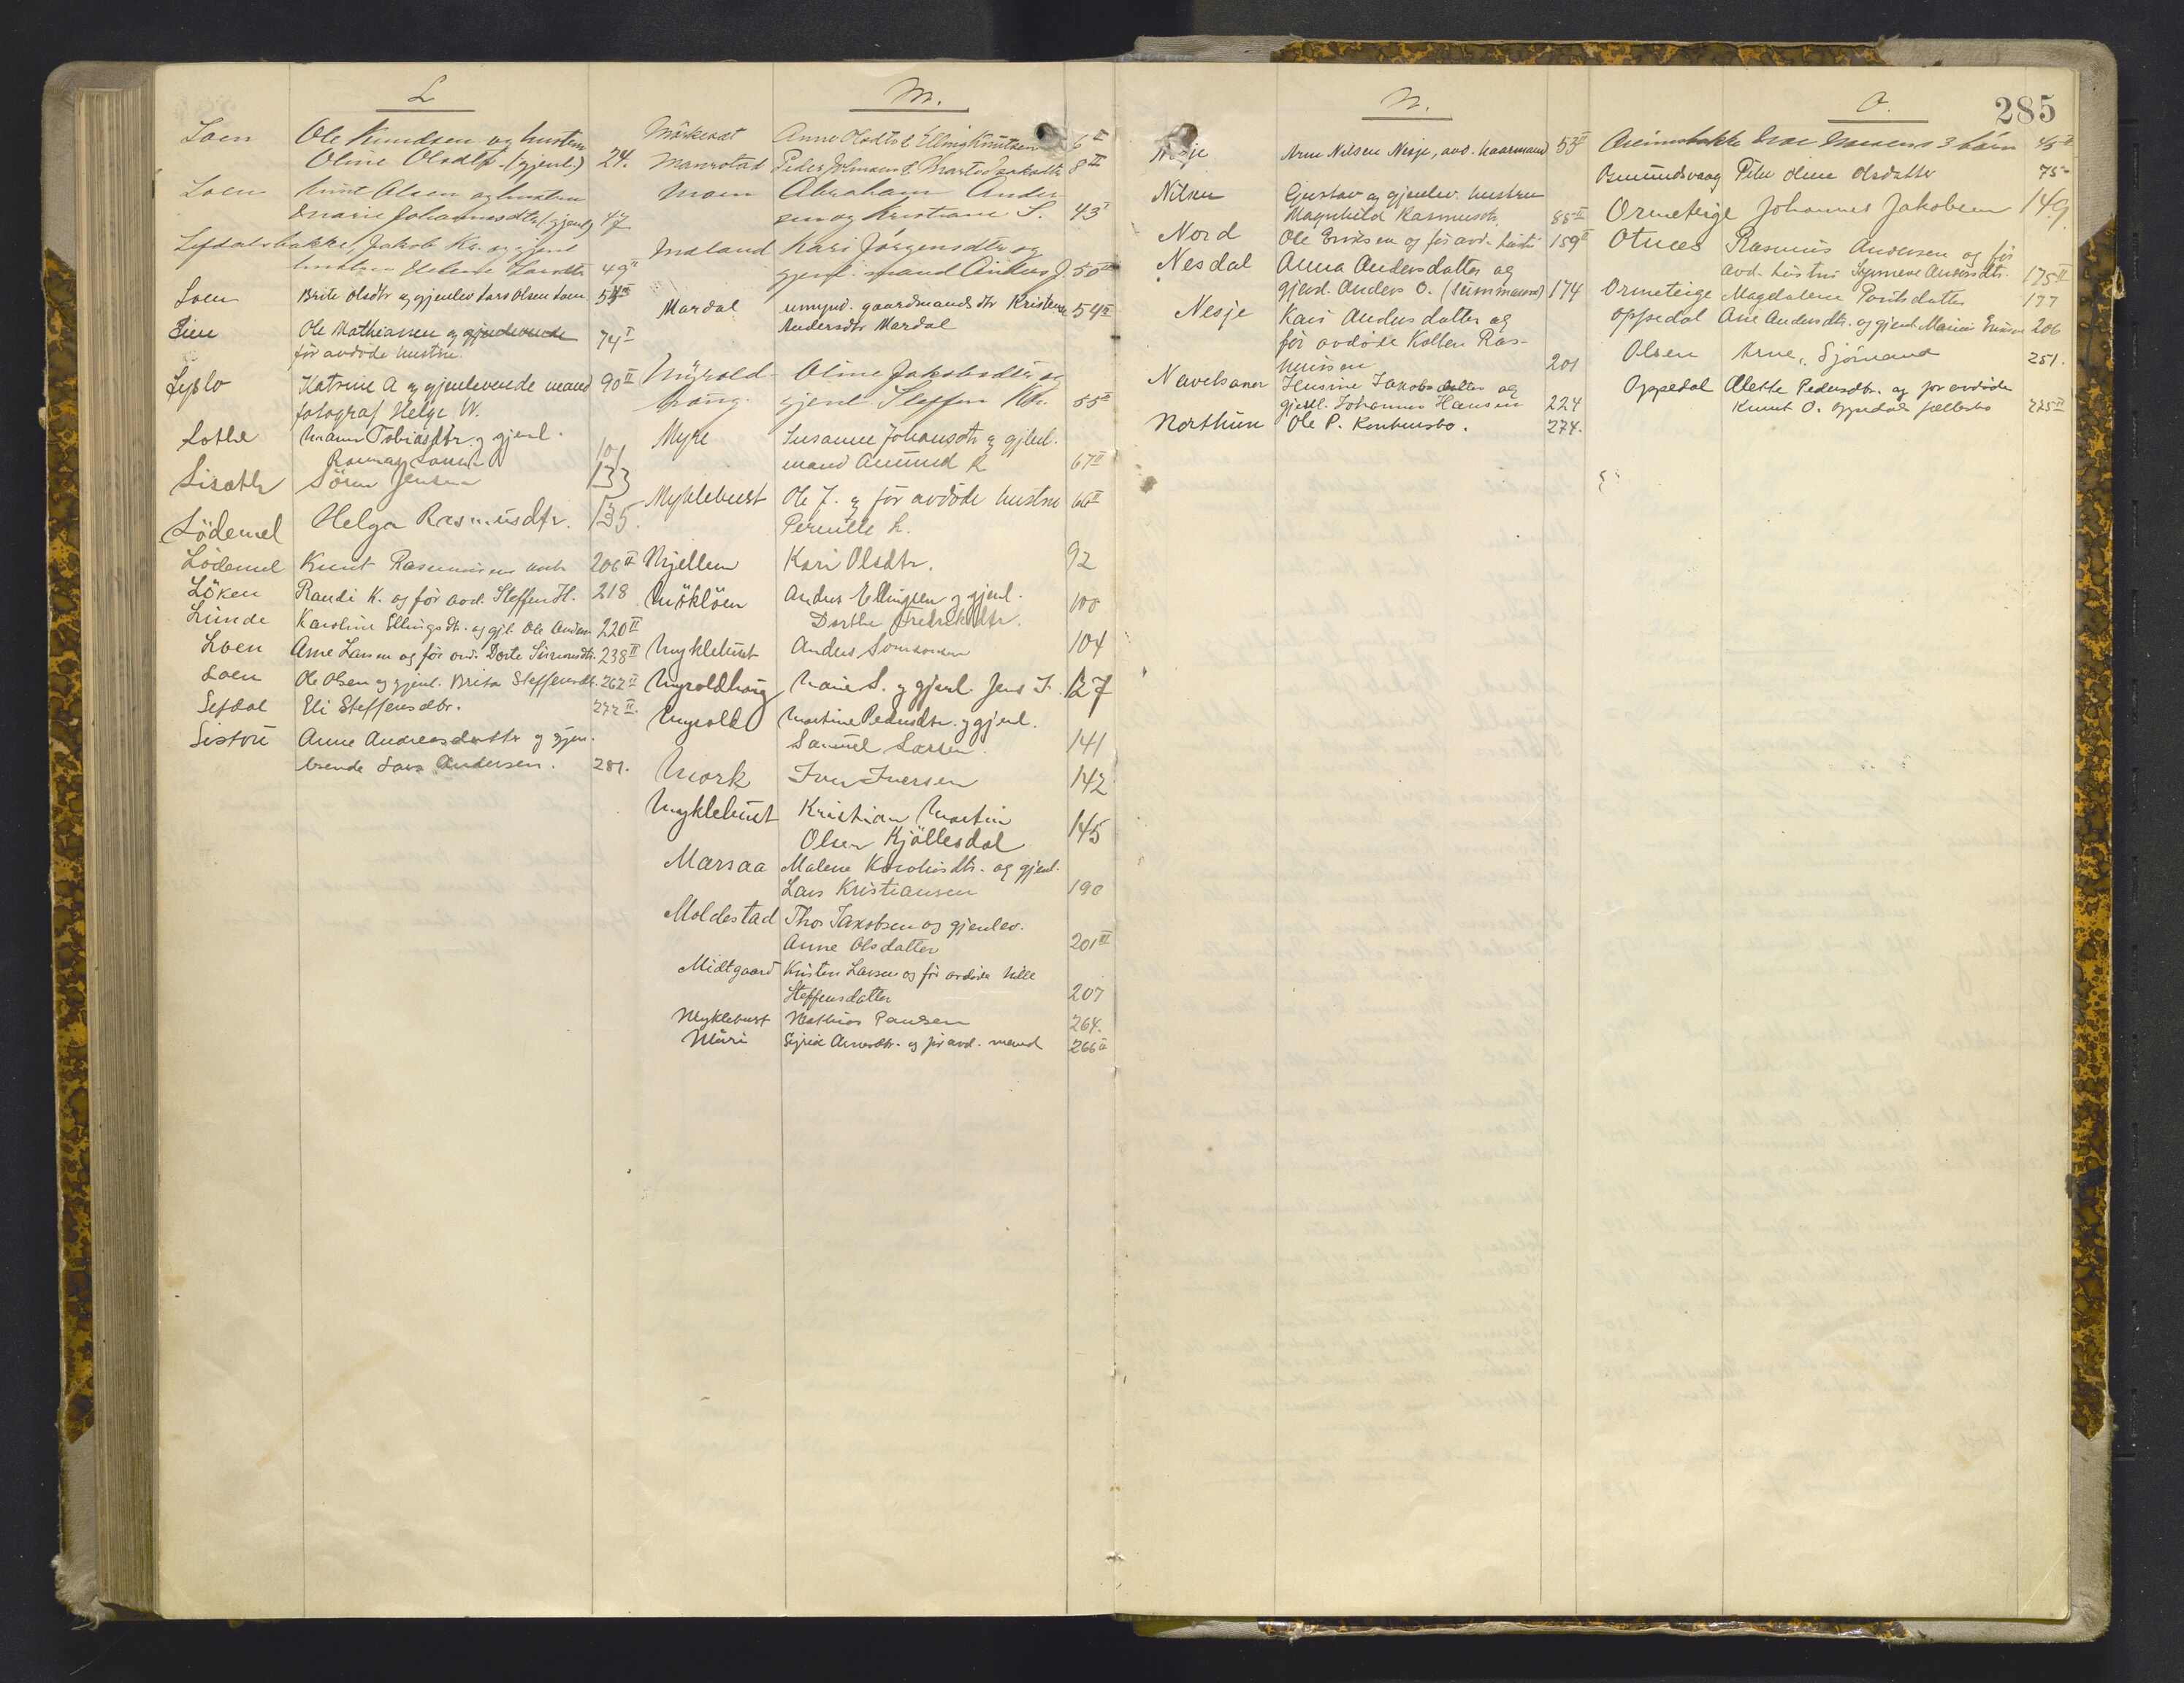 L
Loen Ole Knudsen og hustru
Oline Olsdtr. (gjenl.) 24.
Loen Knut Olsen og hustru
Marie Johannesdtr (gjenl) 47
Lefdalsbakke, Jakob Kr. og gjenl
hustru Helene Larsdtr 49 II
Loen Brite Olsdtr og gjenlev Lars Olsen Loen 54 III
Ole Mathiassen og gjenlevende 74 I
før avdøde hustru.
Leplo Katrine A og gjenlevende mand 90 II
fotograf Helge W.
Lothe Tobiasdtr. og gjenl.
101
Søren Jensen 133
Lödemel Helga Rasmusdtr. 135.
Lödemel Knut Rasmussen 206 II
Löken Randi K. og før avd. Steffen H. 218
Lunde Karoline Ellingsdtr. og gjl. Ole Anders 220 II
Loen Arne Larsen og før avd. Dorte Simonsdtr. 238 II
Loen Ole Olsen og gjenl. Brita Steffensdt. 262 II
Lefdal Eli Steffensdtr. 272 II.
Anne Andreasdatter og gjen-
levende Lars Andersen. 281.
M.
Anne Olsdtr & Elling Knutsen 6 II
Peder Johnsen & Marte Jakobdtr 8 II
Moen Abraham Ander
sen og Kristiane S. 43 I
Maland Kari Jørgensdtr og
gjenl. mand Anders J. 50 II
Mardal umynd. gaardmandsdtr Kristense 54 II
Andersdtr Mardal
Myrold- Oline Jakobsdtr og
haug. gjenl. Steffen Kr. 55 II
Myre Susanne Johansdtr og gjenl.
mand Amund R 67 II
Myklebust Ole J. og før avdøde hustru 66 II
Pernille L.
Mjellem Kari Olsdtr. 92
Möklöen Anders Ellingsen og gjenl.
Dorthe Fredrikdtr. 100
Myklebust Anders Samsonsen 104
Myroldhaug Marie S. og gjenl. Jens J. 127
Myrold Martine Pedersdtr. og gjenl.
Samuel Larsen. 141
Mork Iver Iversen 142
Myklebust Kristian Martin
Olsen Kjöllesdal 145
Marsaa Malene Karolusdtr. og gjenl.
Lars Kristiansen 190
Moldestad Thos Jakobsen og gjenlev.
Anne Olsdatter 201 II
Midtgaard Kristen Larsen og før avdøde Nille
Steffensdatter 207
Myklebust Mathias Paulsen 264.
Muri Sigrid Arnesdtr. og før avd. mand 266 II
N.
Nesje Arne Nilsen Nesje, avd. haarmand 53 II
Nilsen Gustav og gjenlev. hustru
Magnhild Rasmusdtr. 85 II
Nord Ole Eriksen og før avd. hustr 159 II
Nesdal Anna Andersdatter og
gjenl. Anders O. (sinnmand) 174
Nesje Kari Andersdatter og
før avdøde Kolben Ras-
mussen 201
Navelsaner Hansine Jakobsdatter og
gjenl. Johannes Hansen 224
Northun Ole P. 274.
O.
285
3 børn 45 II
Osmundsvaag Peter Oline Olsdatter 75
Ormeteige Johannes Jakobsen 149
Otnees Rasmus Andersen og før
avd. hustru Synneve Andersdtr. 175 II
Ormeteige Magdalene Poulsdatter 177
Oppedal Ane Andersdtr. og gjenl. Marius Ericsen 206
Olsen Arne, Sjömand 251.
Oppedal Alette Pedersdtr. og før avdøde
Knut O. Oppedals fællesbo 275 II